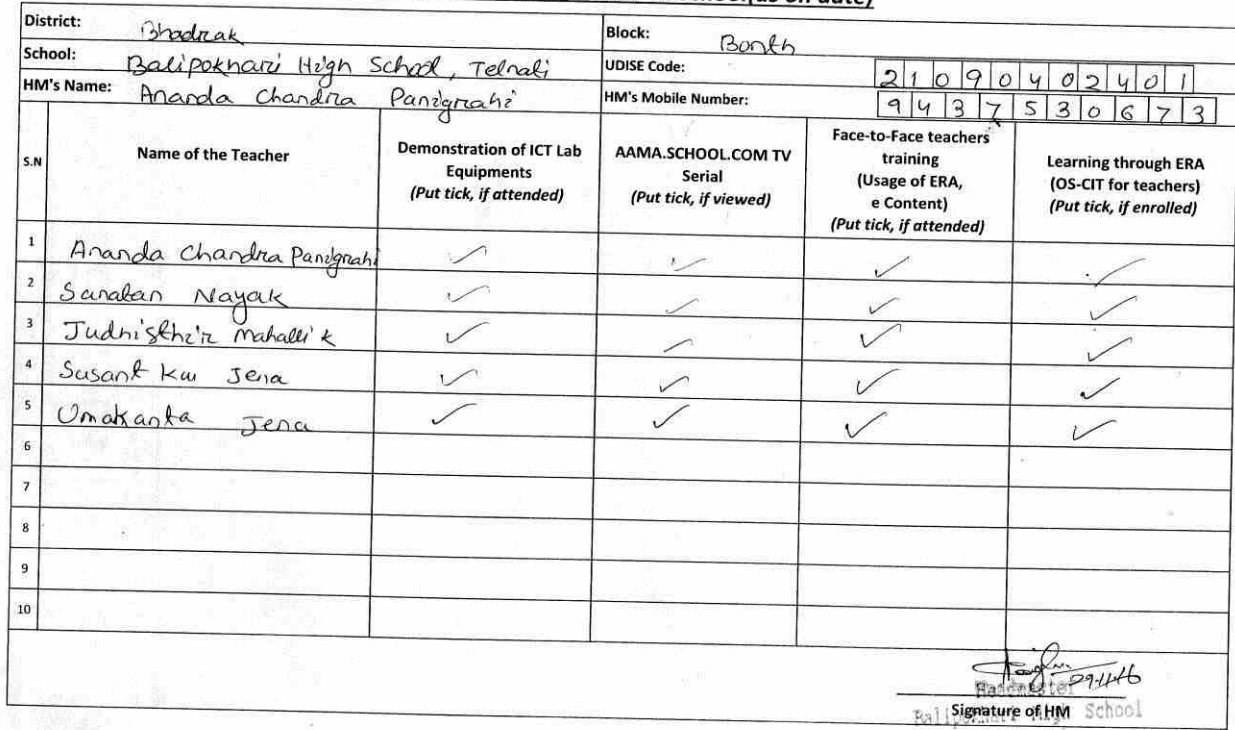 School(as on date)
District: Bhadrak Block: Bonth
School: Balipokhari High School, Telnali UDISE Code: 21090402401
HM's Name: Ananda Chandra Panigrahi HM's Mobile Number: 9437530673
S.N Name of the Teacher Demonstration of ICT Lab Equipments (Put tick, if attended) AAMA.SCHOOL.COM TV Serial (Put tick, if viewed) Face-to-Face teachers training (Usage of ERA, e Content) (Put tick, if attended) Learning through ERA (OS-CIT for teachers) (Put tick, if enrolled)
1 Ananda Chandra Panigrahi ✓ ✓ ✓ ✓
2 Sanatan Nayak ✓ ✓ ✓ ✓
3 Judhisthir Mahallik ✓ ✓ ✓ ✓
4 Susant Ku Jena ✓ ✓ ✓ ✓
5 Umakanta Jena ✓ ✓ ✓ ✓
6
7
8
9
10
29-11-16
Headmaster
Signature of HM
Balipokhari High School